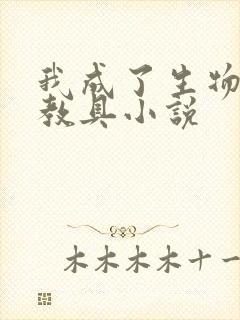 我成了生物
教具小说
木木木木十一